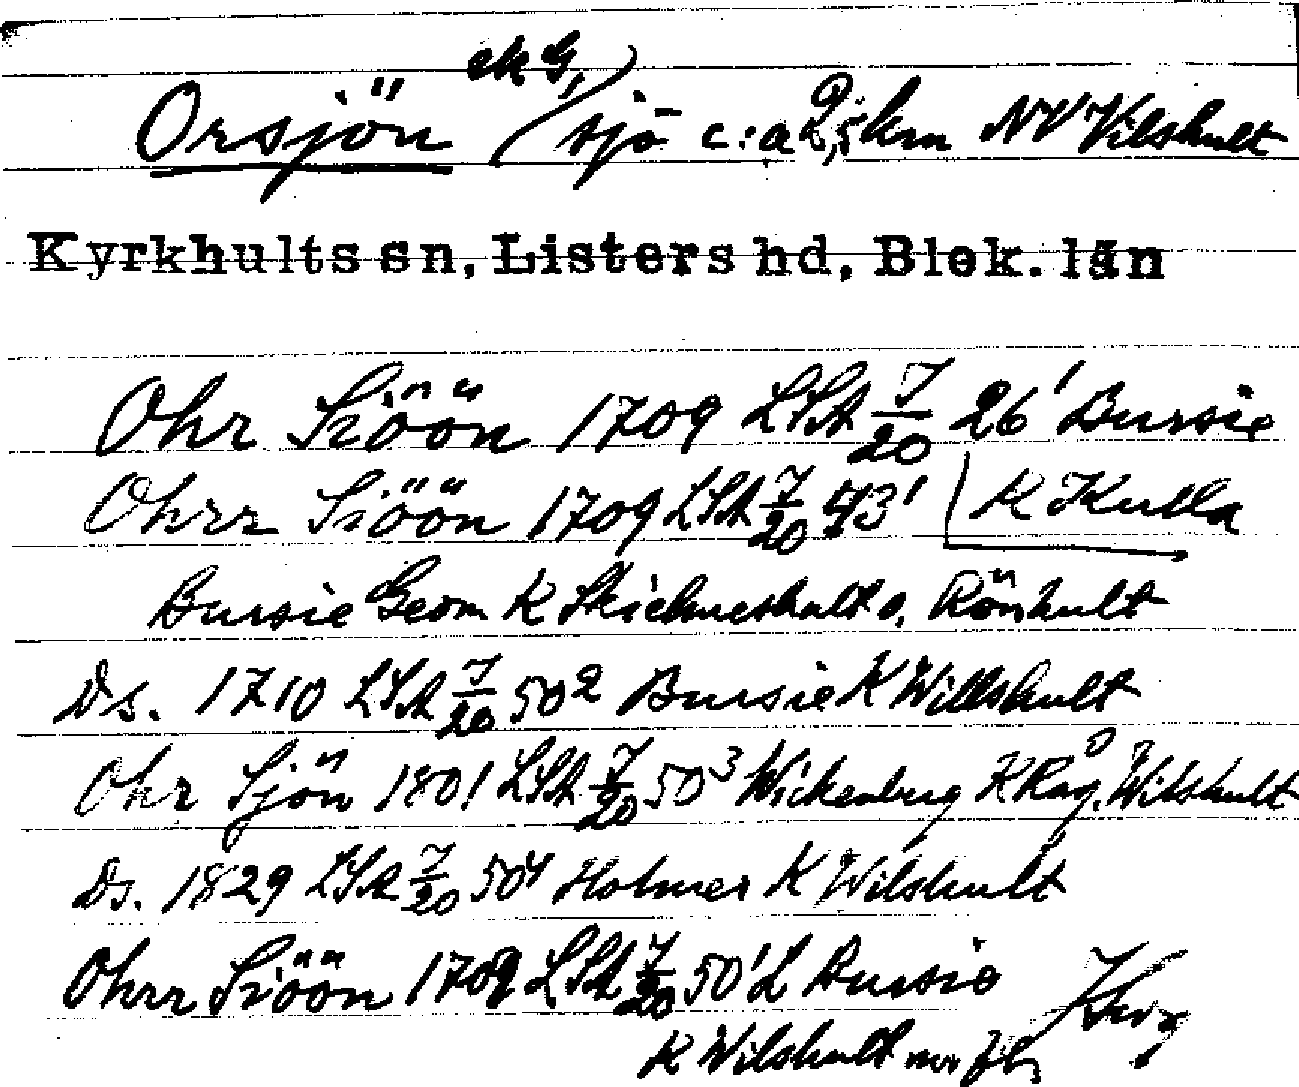 ek G,
Orsjön / sjö c:a 2,5 km NV Vilshult
Kyrkhults sn, Listers hd, Blek. län
Ohr Siöön 1709 LSA 7/20 26¹ Bursie
K Kulla
Ohrr Siöön 1709 LSA 7/20 43¹
Bursie Geom K Skichueshult o. Rönhult
Ds. 1710 LSA 7/20 50² Bursie K Willshult
Ohr Sjön 1801 LSA 7/20 50³ Wickenberg K Råg. Wilshult
Ds. 1829 LSA 7/20 50⁴ Holmer K Wilshult
Ohrr Siöön 1709 LSA 7/20 50¹ L Bursie
K Wilshult